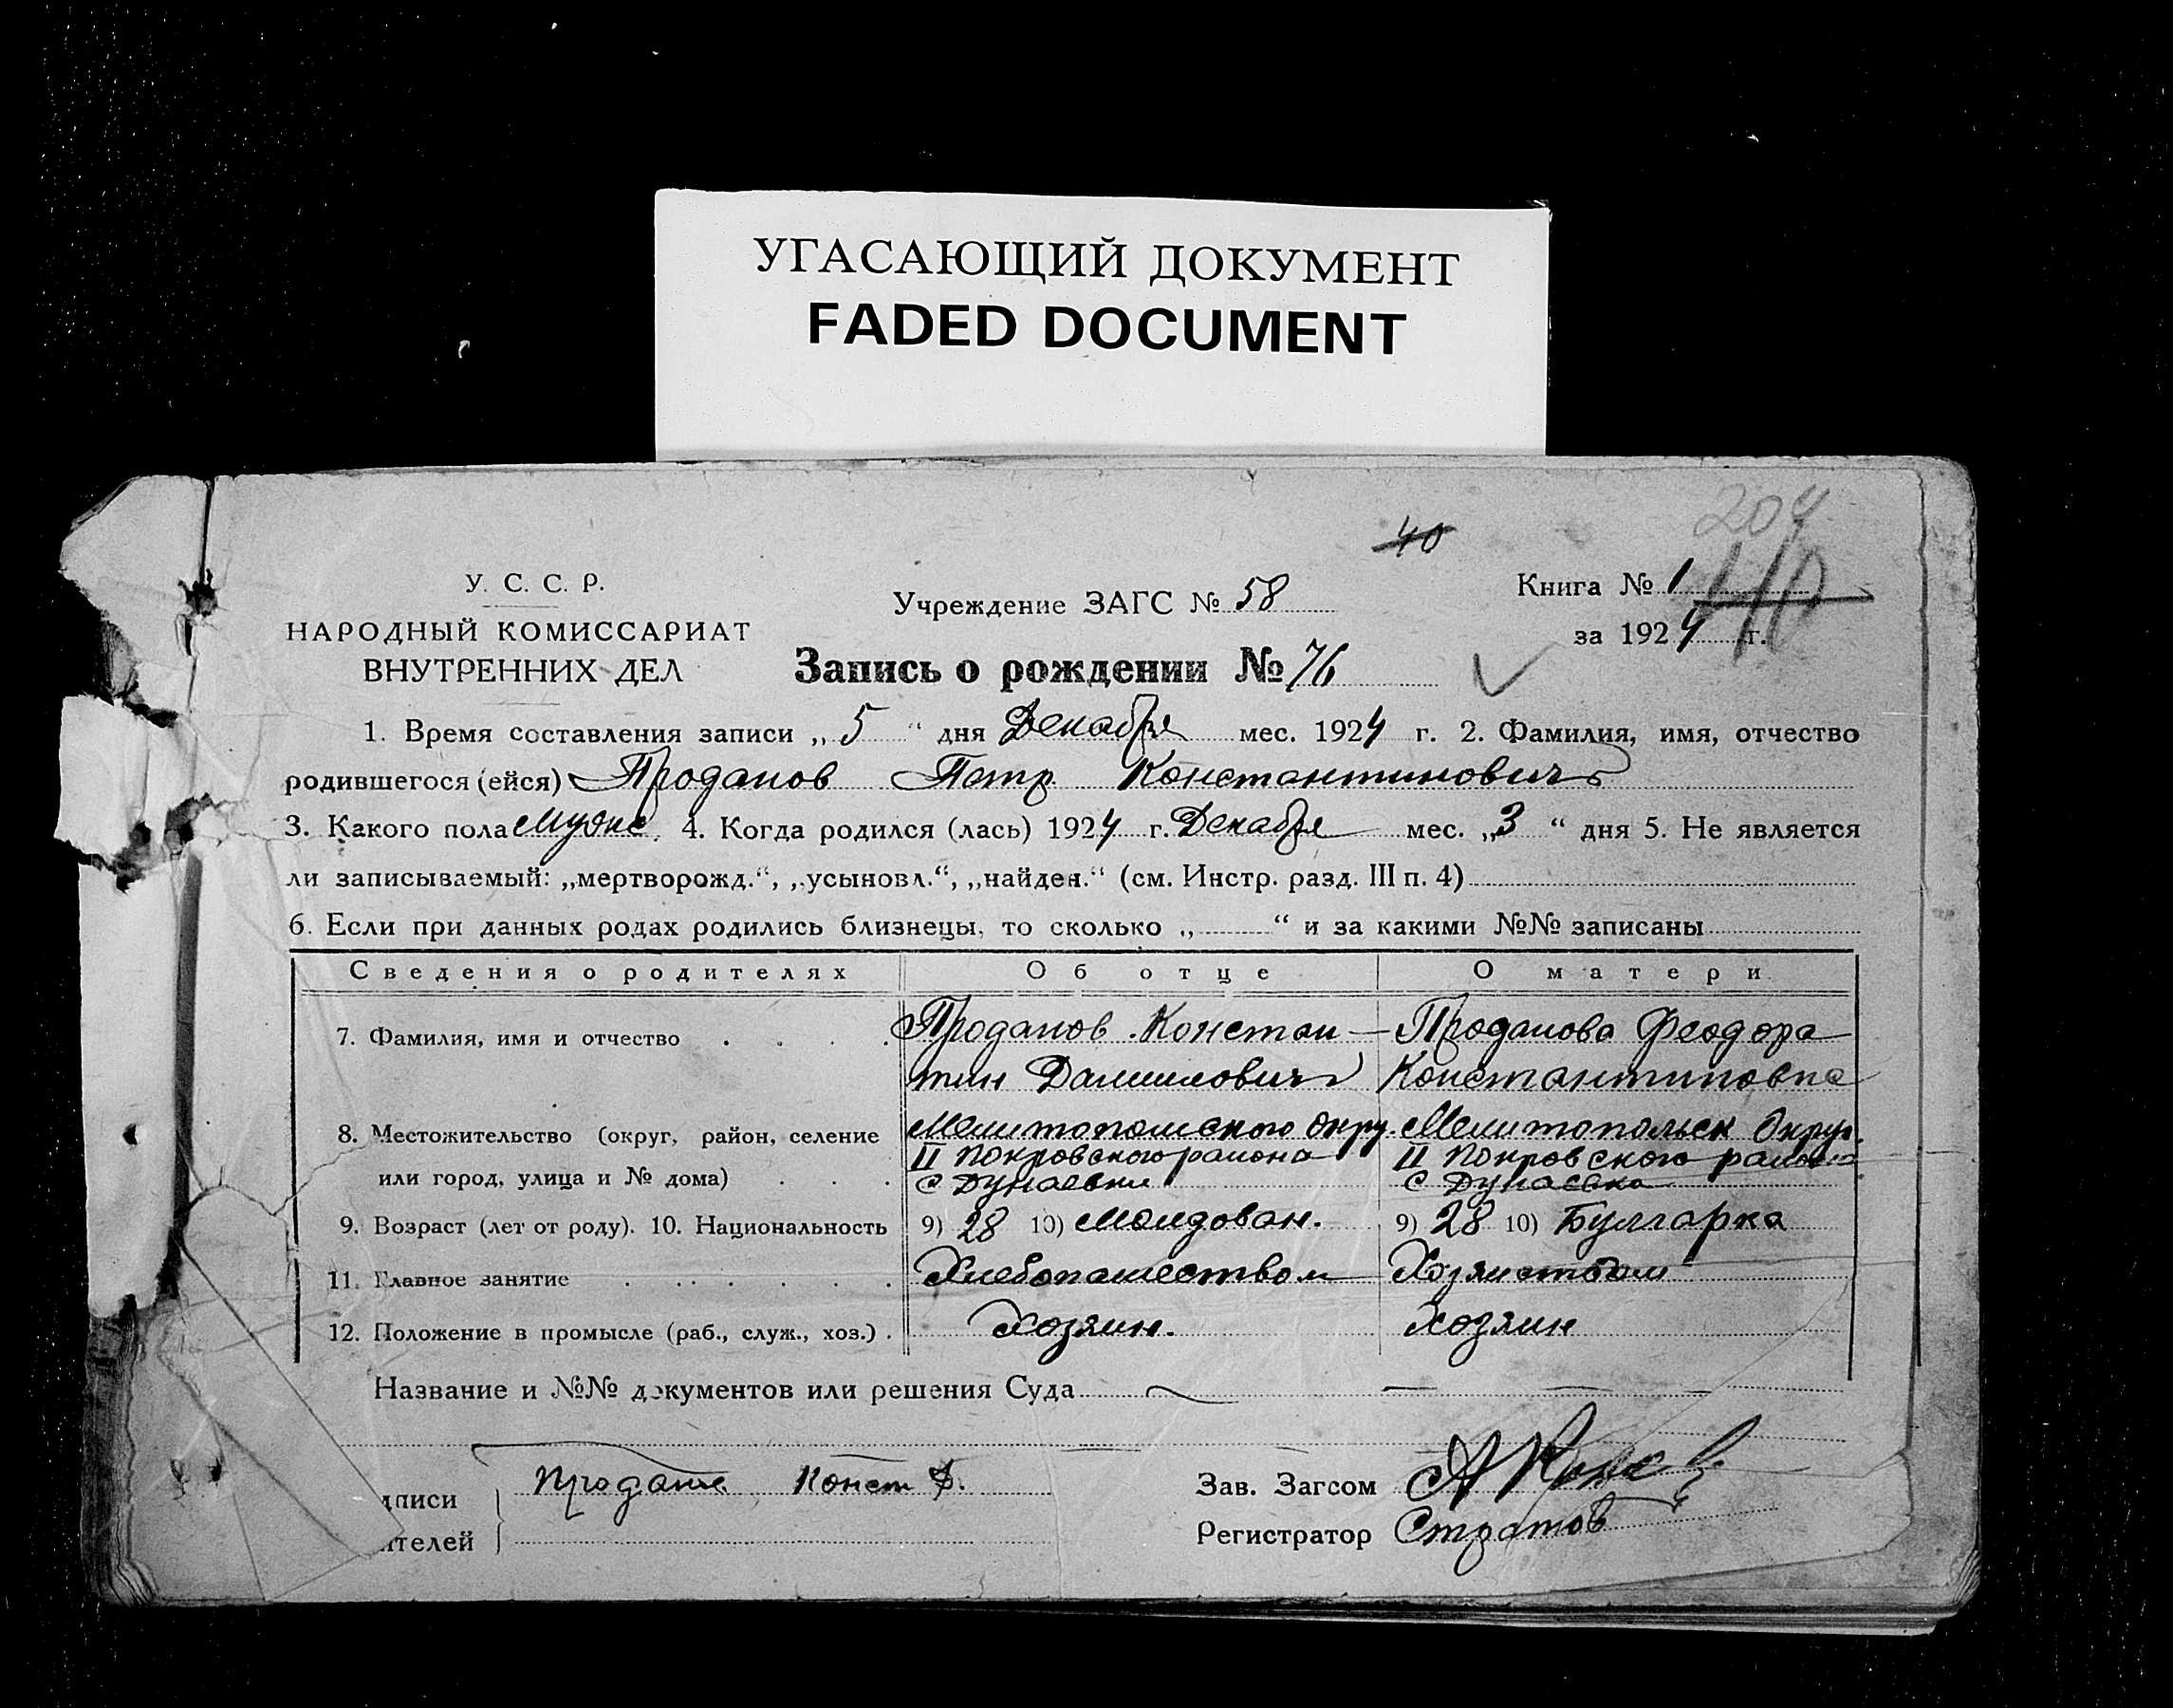 УГАСАЮЩИЙ ДОКУМЕНТ
FADED DOCUMENT
204
40
110
У. С. С. Р.
НАРОДНЫЙ КОМИССАРИАТ
ВНУТРЕННИХ ДЕЛ
Учреждение ЗАГС № 58
Книга № 1
за 1924 г.
Запись о рождении № 76
1. Время составления записи „ 5 “ дня Декабря мес. 1924 г. 2. Фамилия, имя, отчество
родившегося (ейся) Проданов Петр Константинович
3. Какого пола Мужс. 4. Когда родился (лась) 1924 г. Декабря мес. „3 “ дня 5. Не является
ли записываемый: „мертворожд.“, „усыновл.“, „найден.“ (см. Инстр. разд. III п. 4)
6. Если при данных родах родились близнецы, то сколько „ “ и за какими №№ записаны
Сведения о родителях Об отце О матери
7. Фамилия, имя и отчество . . . . Проданов Констан— Проданова Феодора
тин Данилович Константиновна
8. Местожительство (округ, район, селение Мелитопольского Окру. Мелитопольск Округ.
II Покровского района II Покровского района
или город, улица и № дома) . . . с Дунаевки с Дунаевка
9. Возраст (лет от роду). 10. Национальность 9) 28 10) Молдован. 9) 28 10) Булгарка
11. Главное занятие . . . . . . Хлебопашеством Хозяйством
12. Положение в промысле (раб., служ., хоз.) . Хозяин. Хозяин
Название и №№ документов или решения Суда
дписи Продан Конст Д.
ителей
Зав. Загсом
Регистратор Стратов